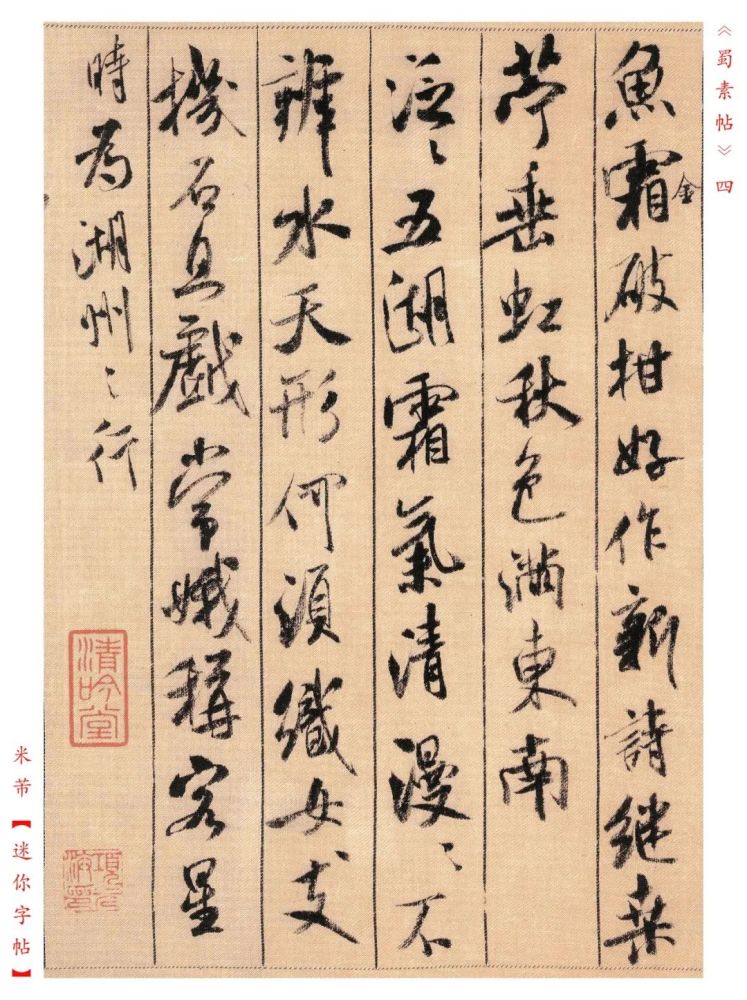 《蜀素帖》四
魚霜金破柑好作新詩繼桑
苧垂虹秋色滿東南
泛〻五湖霜氣清漫〻不
辨水天形何須織女支
機石且戲常娥稱客星
時為湖州之行
清吟堂
米芾【迷你字帖】